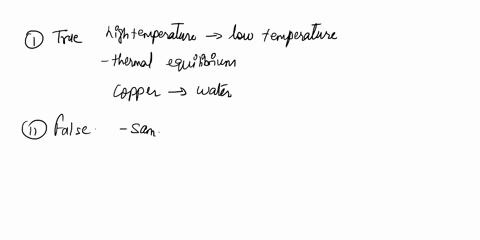 (i) True high temperature → low temperature
- thermal equilibrium
Copper → water
(ii) False. - sam.